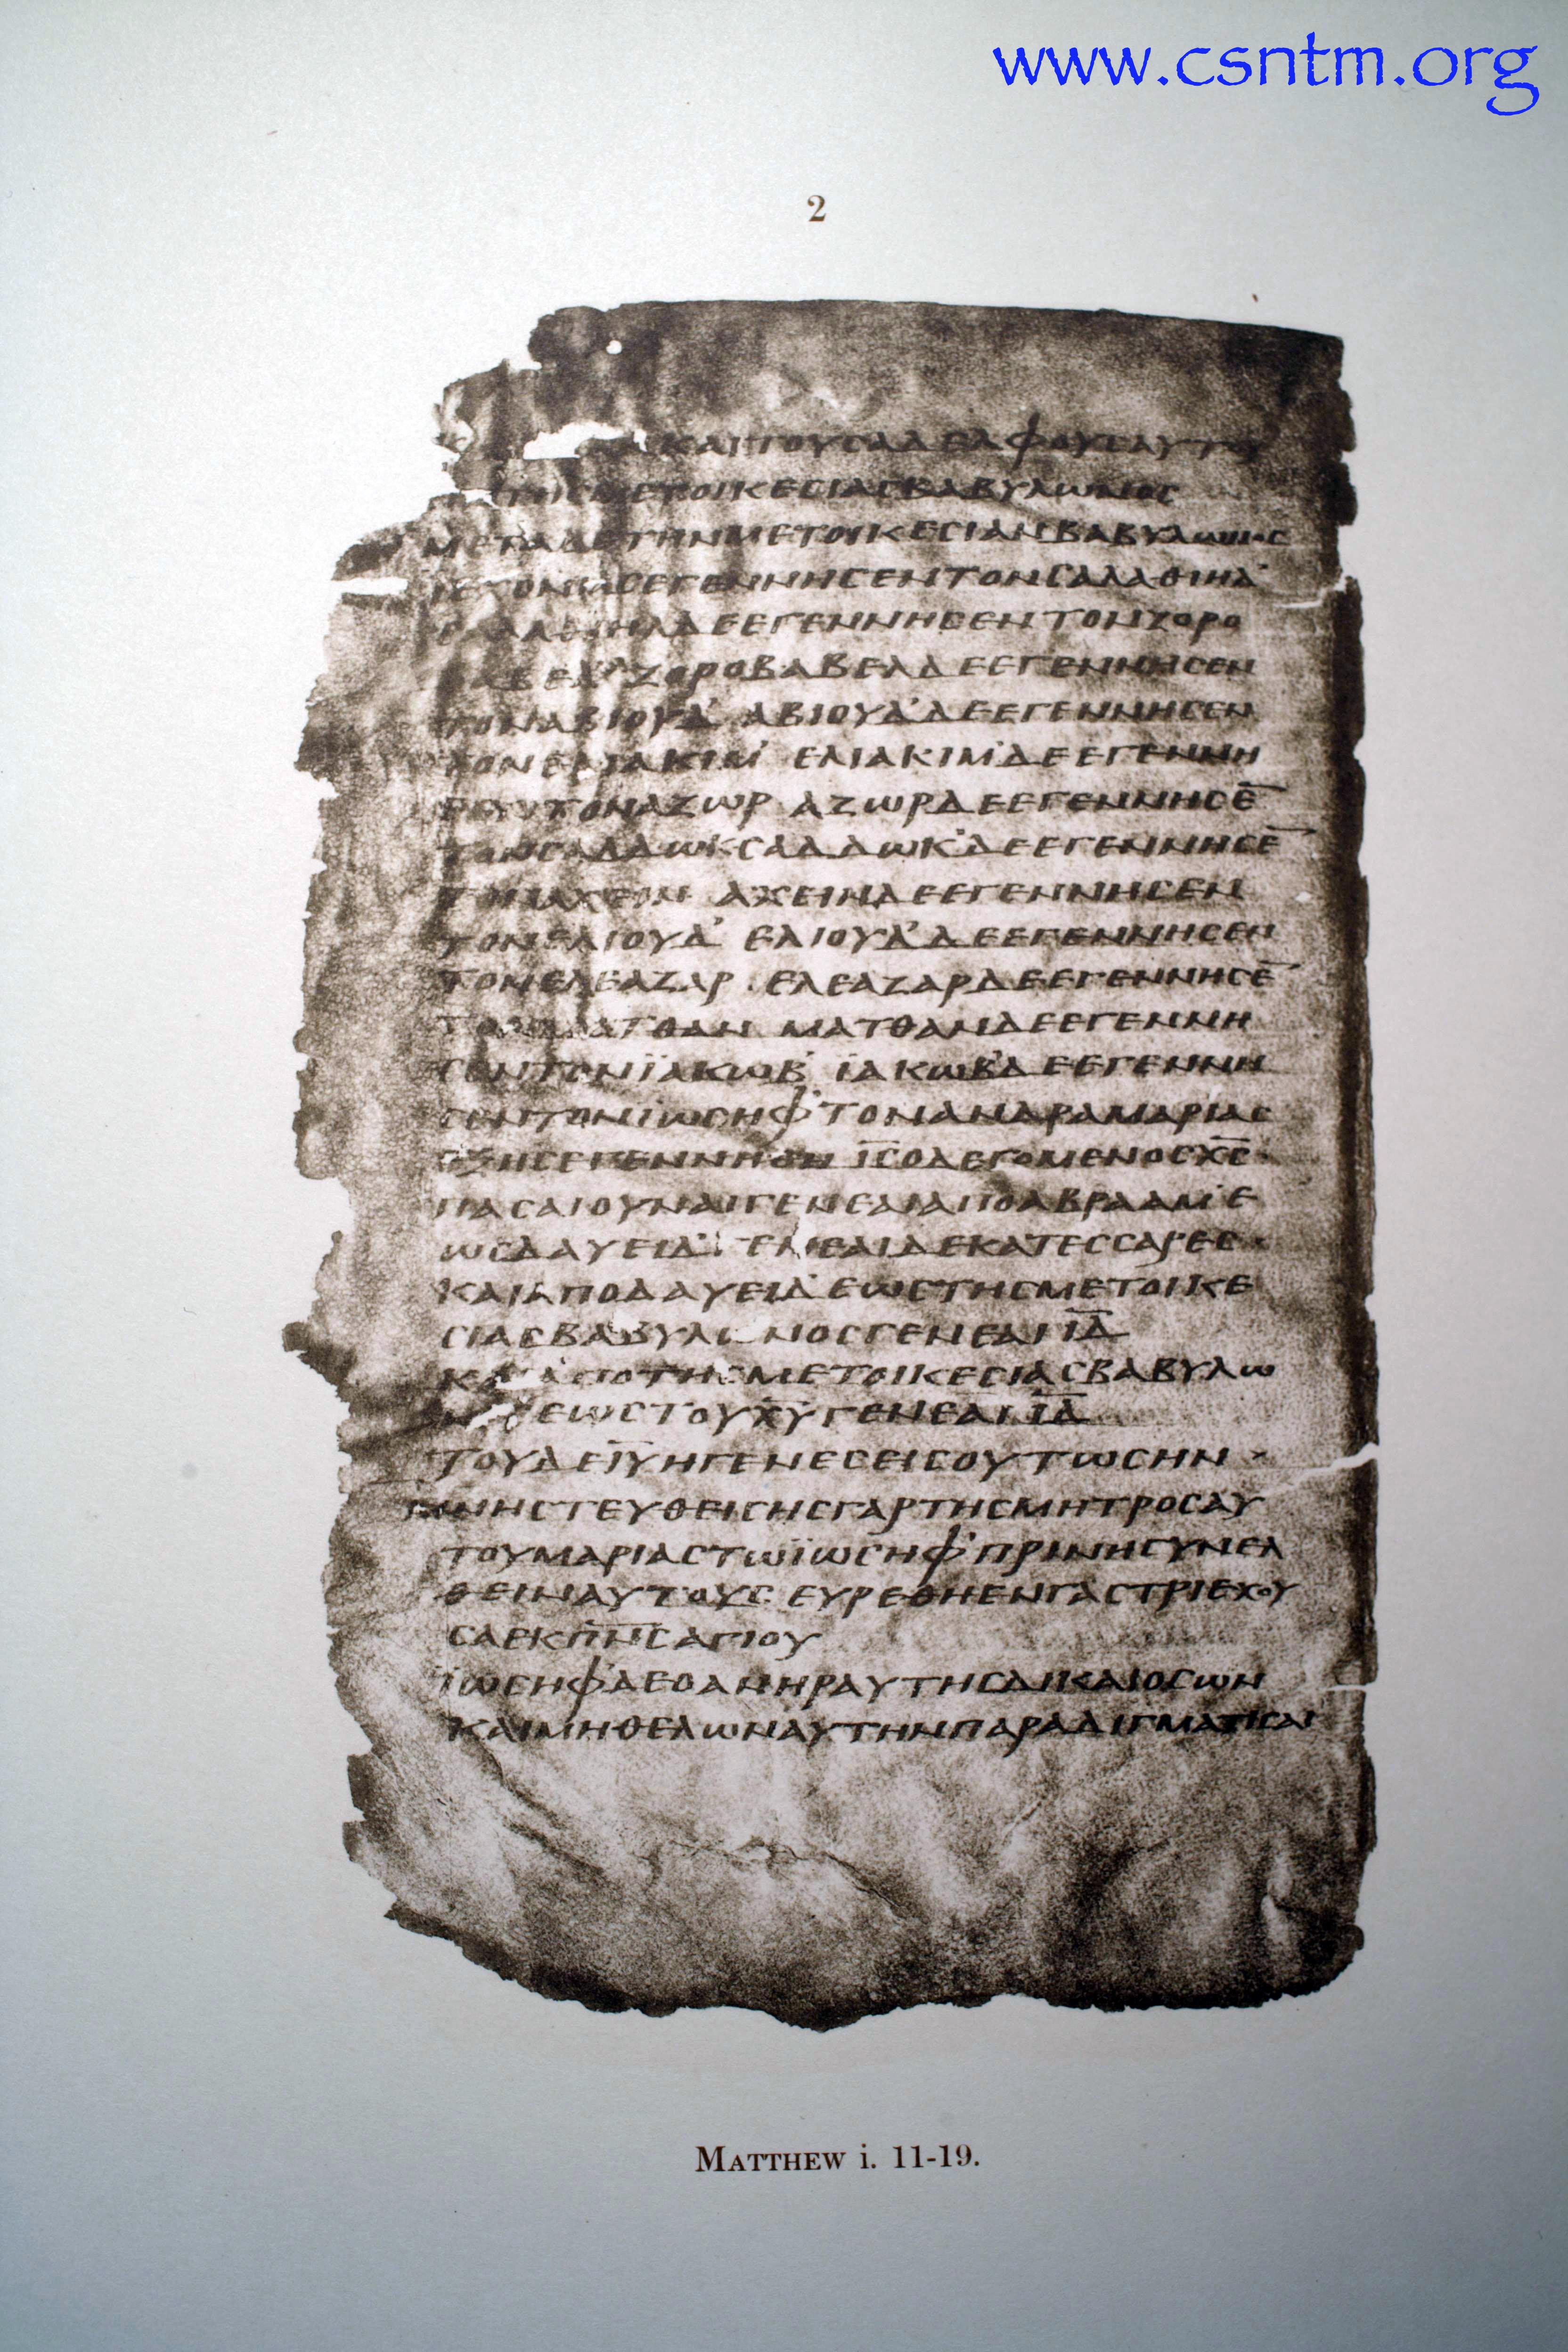 www.csntm.org
2
ΚΑΙΤΟΥСΑΔΕΛΦΟΥСΑΥΤΟΥ
ΜΕΤΟΙΚΕСΙΑСΒΑΒΥΛωΝΟС
ΜΕΤΑΔΕΤΗΝΜΕΤΟΙΚΕСΙΑΝΒΑΒΥΛωΝΟС
ΕΓΕΝΝΗСΕΝΤΟΝСΑΛΑΘΙΗΛ
ΔΕΕΓΕΝΝΗСΕΝΤΟΝΖΟΡΟ
ΒΑΒΕΛ ΖΟΡΟΒΑΒΕΛΔΕΕΓΕΝΝΗСΕΝ
ΤΟΝΑΒΙΟΥΔ’ ΑΒΙΟΥΔ’ΔΕΕΓΕΝΝΗСΕΝ
ΤΟΝΕΛΙΑΚΙΜ’ ΕΛΙΑΚΙΜ’ΔΕΕΓΕΝΝΗ
ΤΟΝΑΖωΡ ΑΖωΡΔΕΕΓΕΝΝΗСΕ̅
ΤΟΝСΑΔΔωΚ’СΑΔΔωΚ’ΔΕΕΓΕΝΝΗСΕ̅
ΑΧΕΙΝΔΕΕΓΕΝΝΗСΕΝ
ΤΟΝΕΛΙΟΥΔ’ ΕΛΙΟΥΔ’ΔΕΕΓΕΝΝΗСΕΝ
ΤΟΝΕΛΕΑΖΑΡ ΕΛΕΑΖΑΡΔΕΕΓΕΝΝΗСΕ̅
ΜΑΤΘΑΝ ΜΑΤΘΑΝΔΕΕΓΕΝΝΗ
СΕΝΤΟΝΪΑΚωΒ’ ΪΑΚωΒ’ΔΕΕΓΕΝΝΗ
СΕΝΤΟΝΪωСΗΦ’ΤΟΝΑΝΔΡΑΜΑΡΙΑС
ΕΞΗСΕΓΕΝΝΗΘΗ Ι̅С̅ΟΛΕΓΟΜΕΝΟСΧ̅С̅·
ΠΑСΑΙΟΥΝΑΙΓΕΝΕΑΙΑΠΟΑΒΡΑΑΜ’Ε
ωСΔΑΥΕΙΔ’ ΓΕΝΕΑΙΔΕΚΑΤΕССΑΡΕС·
ΚΑΙΑΠΟΔΑΥΕΙΔ’ΕωСΤΗСΜΕΤΟΙΚΕ
СΙΑСΒΑΒΥΛωΝΟСΓΕΝΕΑΙΙ̅Δ̅
ΚΑΙΑΠΟΤΗСΜΕΤΟΙΚΕСΙΑСΒΑΒΥΛω
ΕωСΤΟΥΧ̅Υ̅ΓΕΝΕΑΙΙ̅Δ̅
ΤΟΥΔΕΙ̅Υ̅ΗΓΕΝΕСΕΙСΟΥΤωСΗΝ·
ΜΝΗСΤΕΥΘΕΙСΗСΓΑΡΤΗСΜΗΤΡΟСΑΥ
ΤΟΥΜΑΡΙΑСΤωΪωСΗΦ’ΠΡΙΝΗСΥΝΕΛ
ΘΕΙΝΑΥΤΟΥС ΕΥΡΕΘΗΕΝΓΑСΤΡΙΕΧΟΥ
СΑΕΚΠ̅Ν̅С̅ΑΓΙΟΥ
ΪωСΗΦ’ΔΕΟΑΝΗΡΑΥΤΗСΔΙΚΑΙΟСωΝ
ΚΑΙΜΗΘΕΛωΝΑΥΤΗΝΠΑΡΑΔΙΓΜΑΤΙСΑΙ
Matthew i. 11-19.